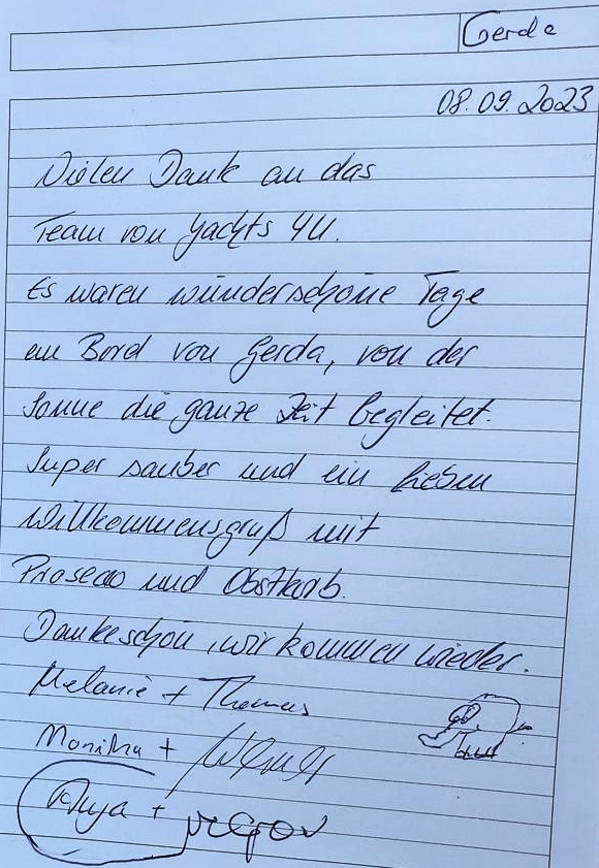 Gerda
08.09.2023
Vielen Dank an das
Team von Yachts 4U.
Es waren wunderschöne Tage
an Bord von Gerda, von der
Sonne die ganze Zeit begleitet.
Super sauber und ein lieben
Willkommensgruß mit
Prosecco und Obstkorb.
Dankeschön, wir kommen wieder.
Melanie + Thomas
Monika +
Anja +